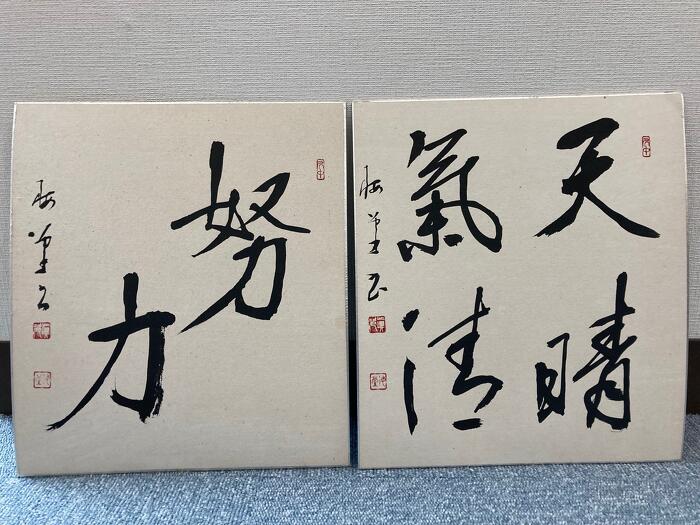 努力
天晴
氣清